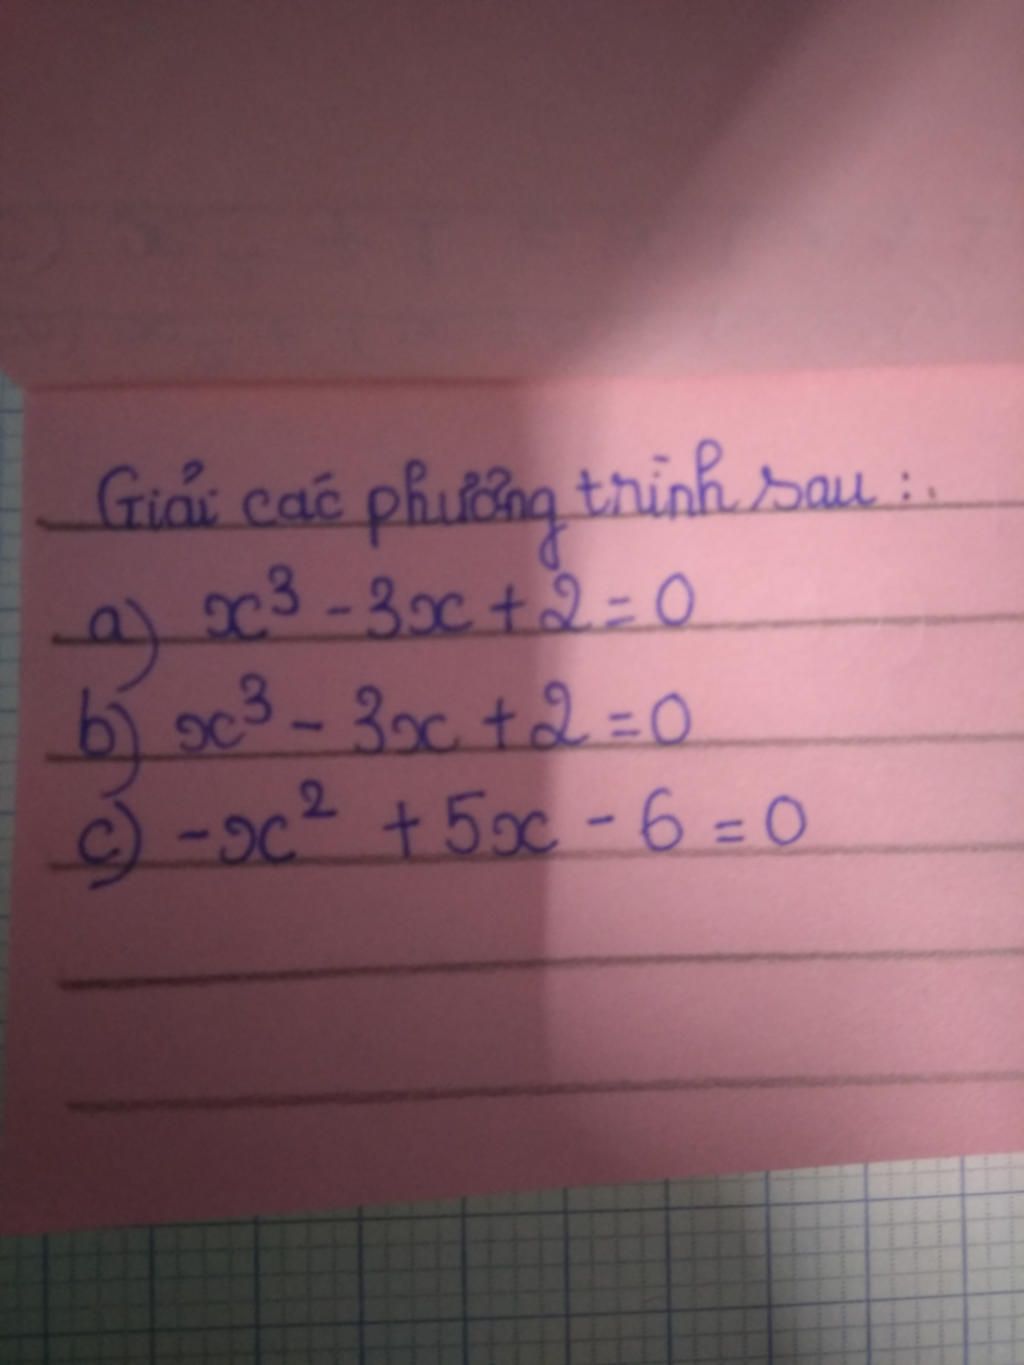 Giải các phương trình sau :
a) x³ - 3x + 2 = 0
b) x³ - 3x + 2 = 0
c) -x² + 5x - 6 = 0